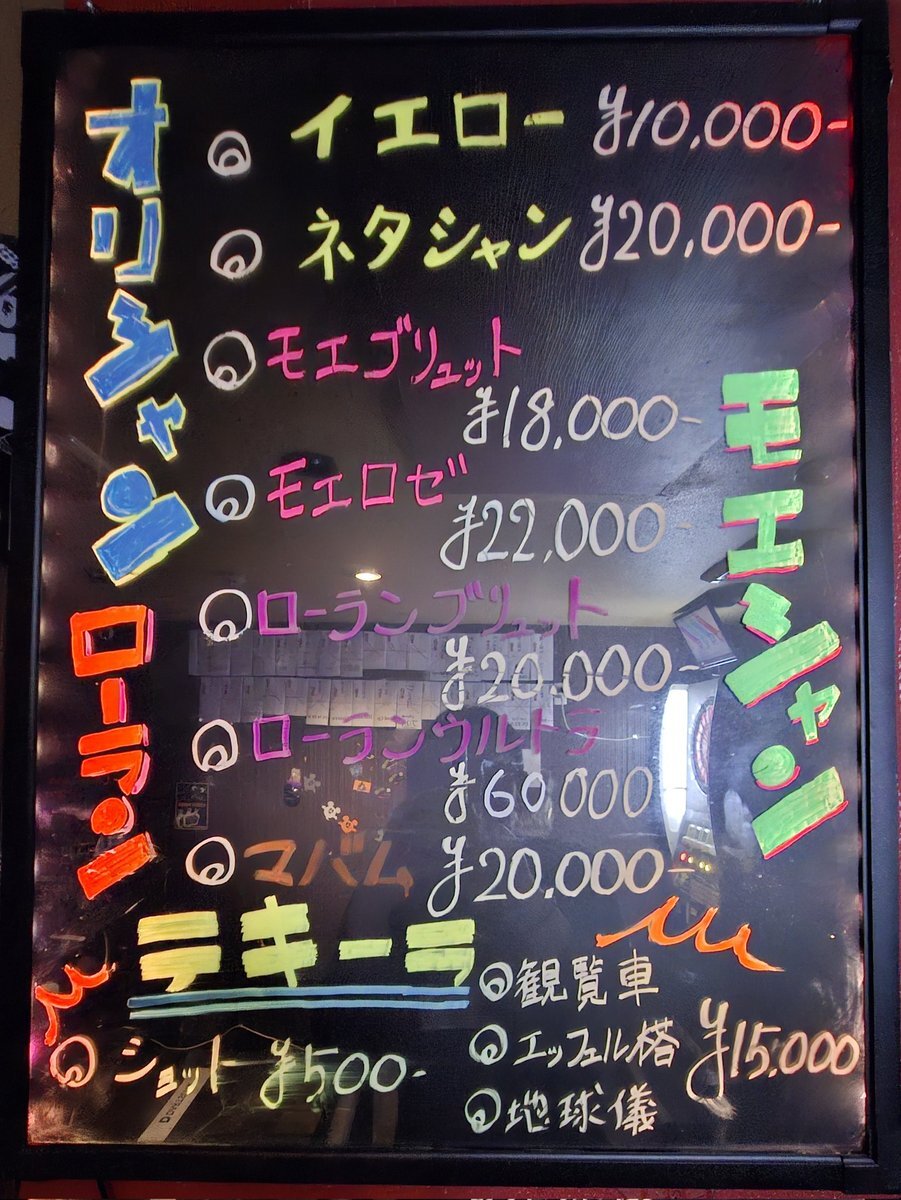 オリシャン
イエロー ¥10,000-
ネタシャン ¥20,000-
モエシャン
モエゴリュット
¥18,000-
モエロゼ
¥22,000-
ローラン
ローランブリュット
¥20,000-
ローランウルトラ
¥60,000
マバム ¥20,000-
テキーラ
ショット ¥500-
観覧車
エッフェル塔 ¥15,000
地球儀